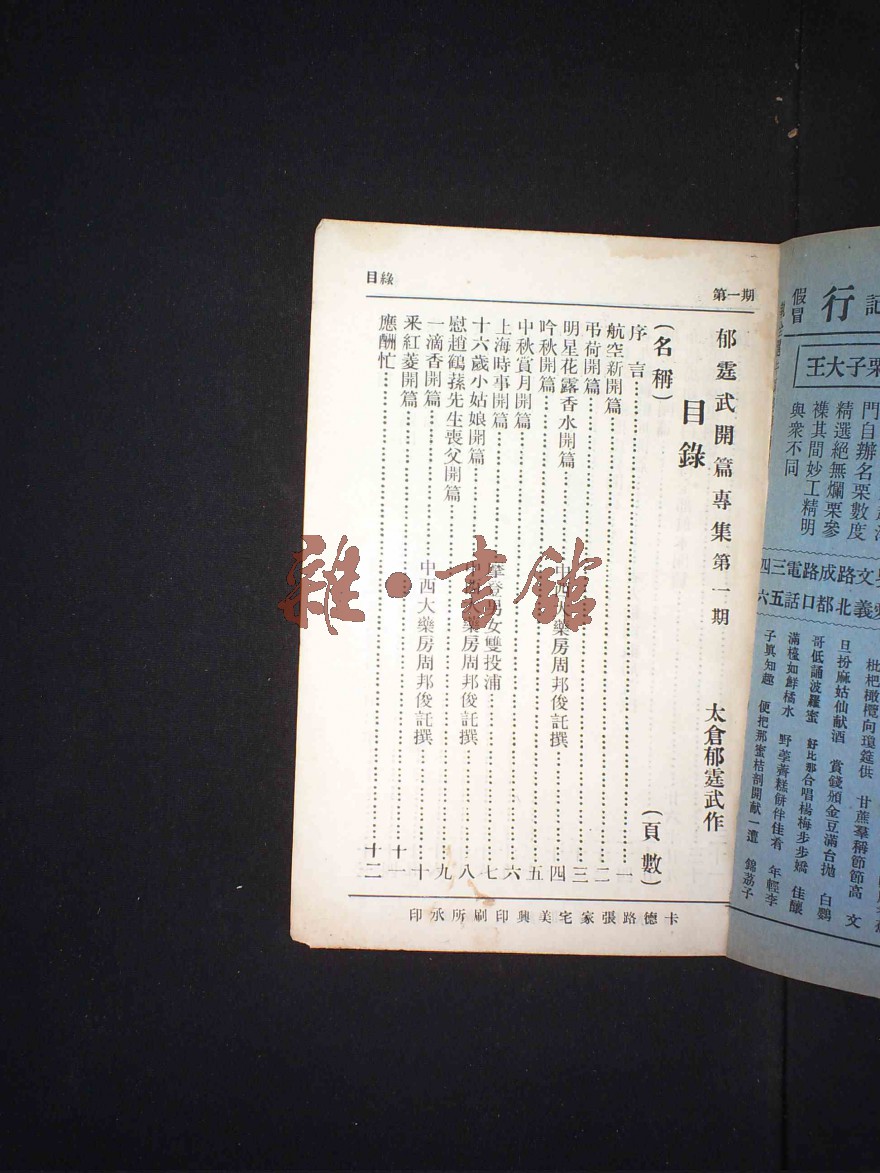 第一期
目綠
郁霆武開篇專集第一期
太倉郁霆武作
目錄
(名稱)
(頁數)
序言……一
航空新開篇……二
弔荷開篇……三
明星花露香水開篇……中西大藥房周邦俊託撰……四
吟秋開篇……五
中秋賞月開篇……六
上海時事開篇……摩登男女雙投浦……七
十六歲小姑娘開篇……中西大藥房周邦俊託撰……八
慰趙鶴蓀先生喪父開篇……九
一滴香開篇……中西大藥房周邦俊託撰……十
釆紅菱開篇……十一
應酬忙……十二
印承所刷印興美宅家張路德卡
雜·書館
記
行
假冒
王大子栗
門自辦名栗數度
精選絕無爛栗參
襍其間妙工精明
與衆不同
四三電路成路文
六五話口都北義愛
枇杷橄欖向瓊筵供 甘蔗羣稱節節高 文
旦扮麻姑仙献酒 賞錢頒金豆滿台拋 白鸚
哥低誦波羅蜜 好比那合唱楊梅步步嬌 佳釀
滿檯如鮮橘水 野荸薺糕餅伴佳肴 年輕李
子眞知趣 便把那蜜桔剖開献一遭 錦荔子